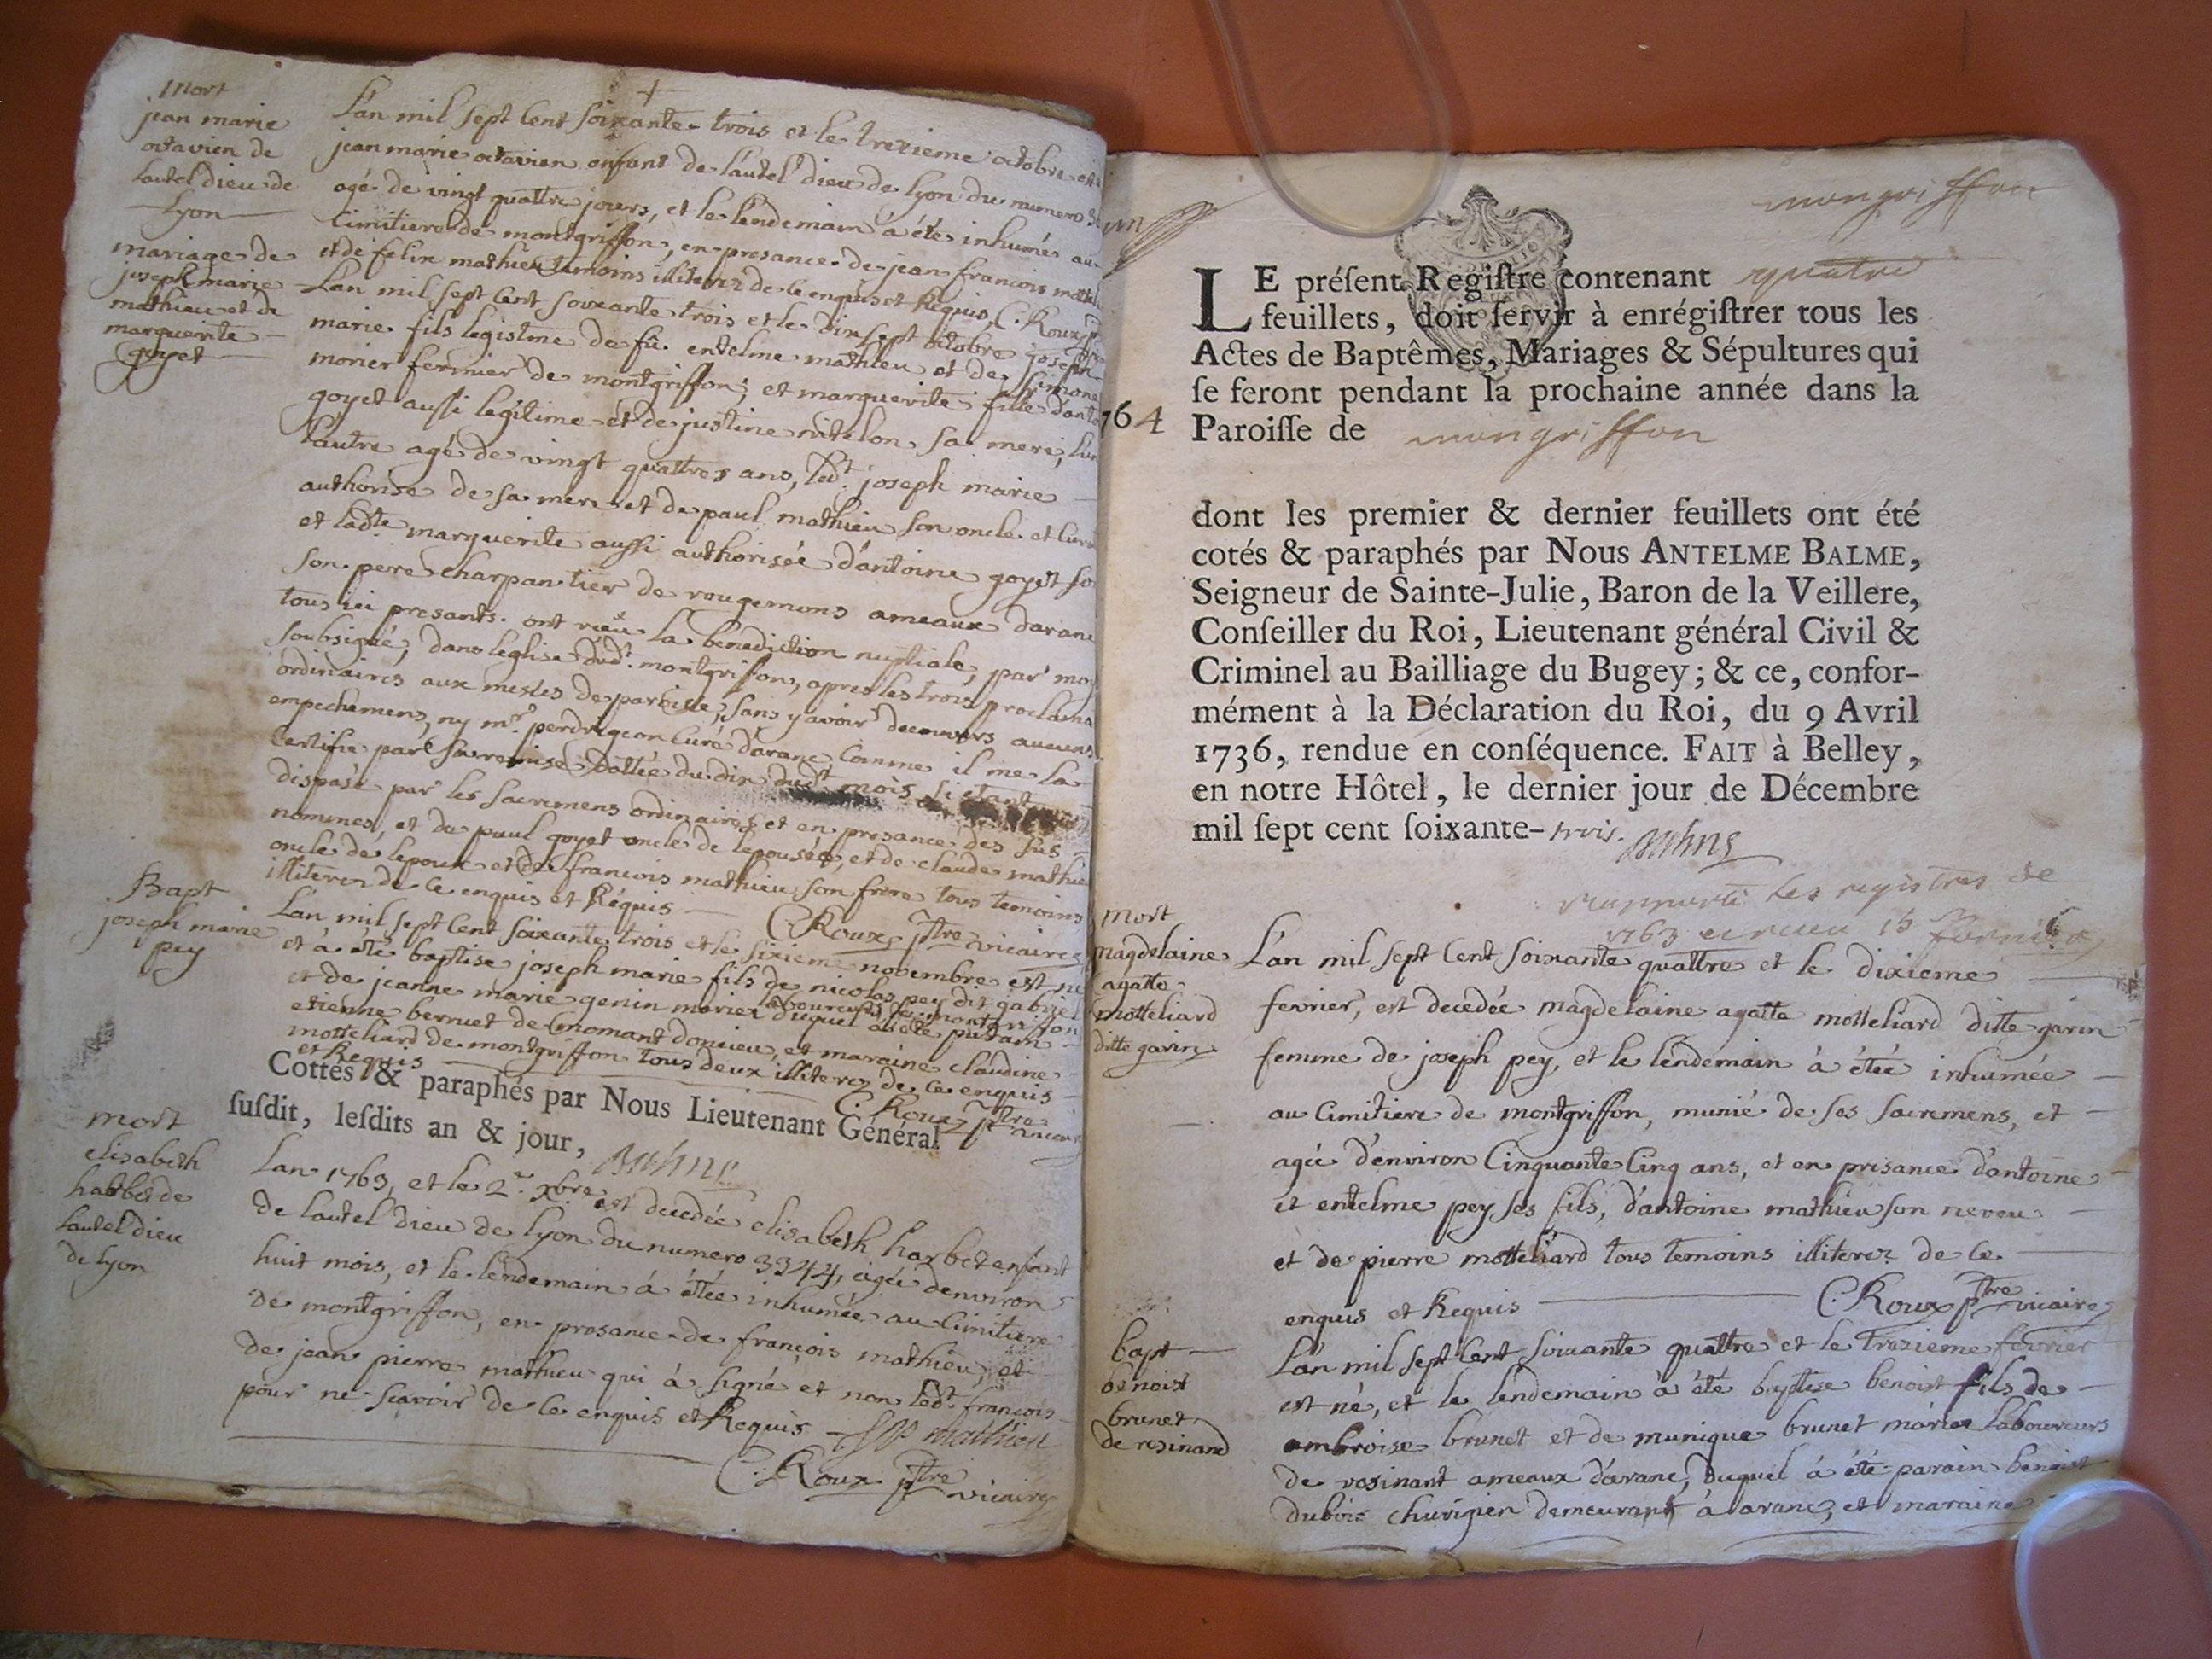 mort
jean marie
octavien de
lautel dieu de
lyon
L'an mil sept cent soixante trois et le trezieme octobre est
jean marie octavien enfant de l'autel dieu de lyon du numero
agé de vingt quattre jours, et le lendemain à été inhumés au
Cimitiere de montgriffon, en presance de jean francois
et de felix mathieu temoins illiterez de ce enquis et Requis, C. Roux
mariage de
joseph marie
mathieu et de
marguerite
goyet
L'an mil sept cent soixante trois et le dix sept octobre joseph
marie fils legistme de fû entelme mathieu et de simone
morier fermier de montgriffon; et marguerite fille
goyet aussi legitime et de justine mitelon sa mere;
lautre agé de vingt quattres ans, led.t joseph marie
authorisé de sa mere et de paul mathieu son oncle et
et lad.te marguerite aussi authorisée d'antoine goyet
son pere charpantier de rougemons ameaux daranc
tous ici presants ont la benediction nuptiale, par
soubsigné, dans leglise dud.t montgriffon, apres les trois
ordinaires aux messes de paroisse, sans y avoir decouvers aucuns
empechemens, ny m.r perdrigeon Curé d'aranc comme il me la
certifie par sa remise dattée du dix dud.t mois
dispasé par les sacremens ordinaires et en presance des sus
nommes, et de paul goyet oncle de lepousée, et de claude
oncle de lepoux et de francois mathieu son frere tous temoins
illiterez de ce enquis et Requis C. Roux, ptre vicaire
Bapt
joseph marie
pey
L'an mil sept cent soixante trois et le sixieme novembre est né
et à été baptise joseph marie fils de nicolas pey dit gabriel
et de jeanne marie genin mariez laboureurs de montgriffon
duquel à été parain
etienne berruet de doncieu, et maraine claudine
motteliard de montgriffon tous deux illiterez de ce enquis
et Requis C. Roux ptre vicaire
Cottés & paraphés par Nous Lieutenant Général
susdit, lesdits an & jour,
mort
elisabeth
harbet de
lautel dieu
de lyon
Lan 1763, et le 2.e xbre est decedée elisabeth harbet enfant
de lautel dieu de lyon du numero 3344, agée denviron
huit mois, et le lendemain à étée inhumée au Cimitiere
de montgriffon, en presance de françois mathieu, et
de jean pierre mathieu qui à signé et non led.t francois
pour ne scavoir de ce enquis et Requis mathieu
C. Roux ptre vicaire
mongriffon
LE présent Registre contenant quatre
feuillets, doit servir à enrégistrer tous les
Actes de Baptêmes, Mariages & Sépultures qui
se feront pendant la prochaine année dans la
Paroisse de mongriffon
764
dont les premier & dernier feuillets ont été
cotés & paraphés par Nous ANTELME BALME,
Seigneur de Sainte-Julie, Baron de la Veillere,
Conseiller du Roi, Lieutenant général Civil &
Criminel au Bailliage du Bugey; & ce, confor-
mément à la Déclaration du Roi, du 9 Avril
1736, rendue en conséquence. FAIT à Belley,
en notre Hôtel, le dernier jour de Décembre
mil sept cent soixante-trois.
les registres de
1763
mort
magdelaine
agatte
motteliard
ditte garin
L'an mil sept Cent soixante quattre et le dixieme
fevrier, est decedée magdelaine agatte motteliard ditte garin
femme de joseph pey, et le lendemain à étée inhumée
au Cimitiere de montgriffon, munié de ses sacremens, et
agée d'environ Cinquante Cinq ans, et en presance d'antoine
et entelme pey ses fils, d'antoine mathieu son neveu
et de pierre motteliard tous temoins illiterez de ce
enquis et Requis C. Roux ptre vicaire
bapt
benoist
brunet
de resinand
L'an mil sept Cent soixante quattre et le trezieme fevrier
est né, et le lendemain à été baptise benoist fils de
ambroise brunet et de munique brunet mariez laboureurs
de rosinant ameaux d'aranc, duquel à été parain benoist
dubois chirugien demeurant à aranc, et maraine